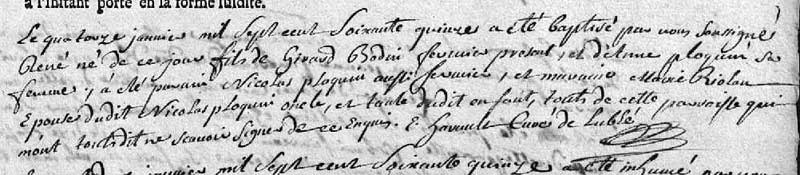 à l'instant porté en la forme susdite.
Le quatorze janvier mil sept cent soixante quinze a été baptisé par nous soussigné
René né de ce jour fils de Girard Bodin fermier présent, et d'Anne ploquin sa
femme, a été parain Nicolas ploquin aussi fermier, et maraine Marie Riolan
Epouse dudit Nicolas ploquin oncle, et tante dudit enfant, touts de cette paroisse qui
m'ont touts dit ne scavoir signer de ce Enquis. E. havault Curé de Lublé
janvier mil sept cent soixante quinze a été inhumé par nous